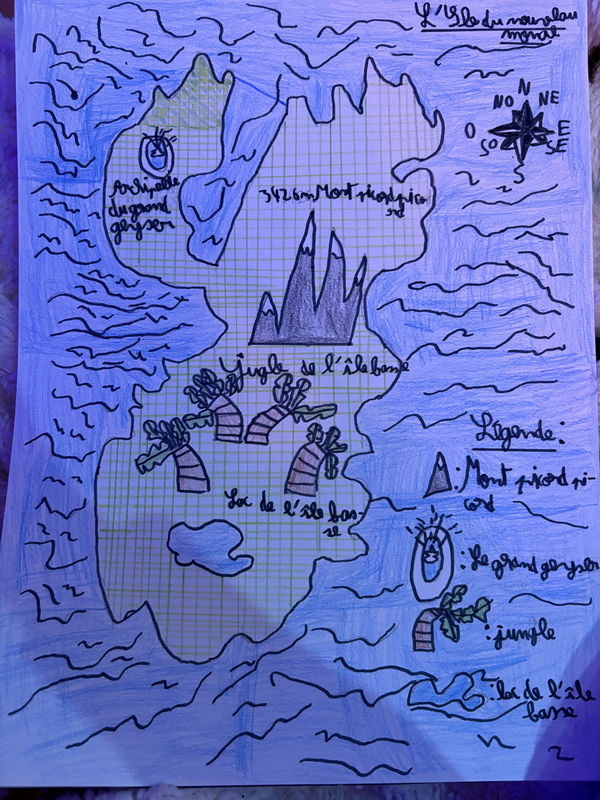 L'île du nouveau
monde
N
NO NE
O E
SO SE
S
Archipelle
du grand
geyser
3426m Mont picord pico
rd
jugle de l'île basse
Lac de l'île bas-
se
Légende:
: Mont picord pi-
cord
: Le grand geyser
: jungle
: lac de l'île
basse